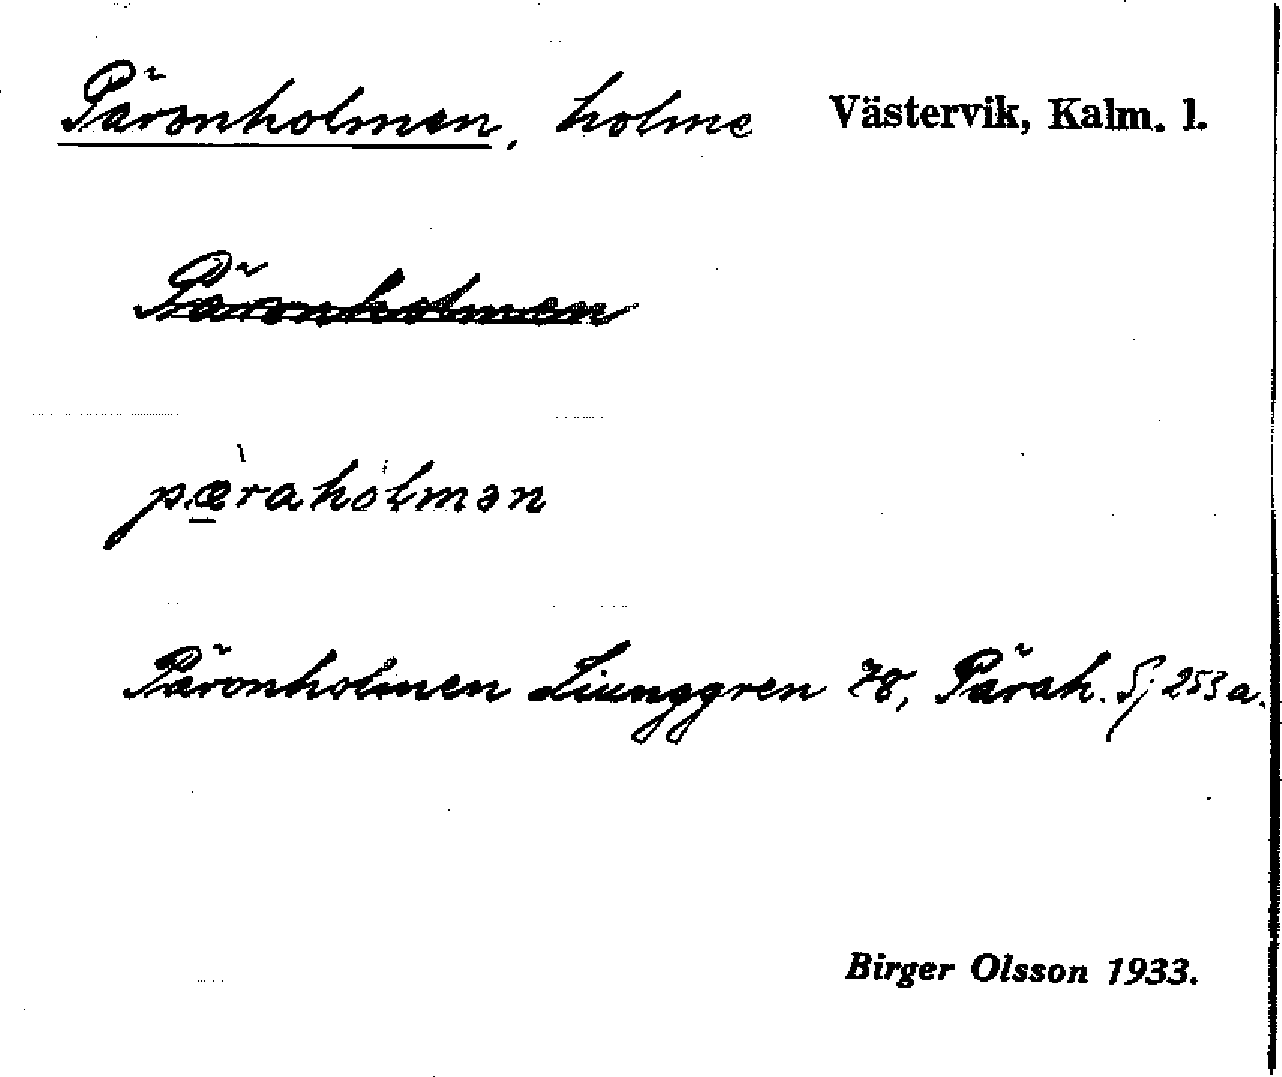 Päronholmen, holme Västervik, Kalm. l.
Päronholmen
pæ̲̀rahòlmən
Päronholmen Liunggren 78, Pärah. Sj 253 a.
Birger Olsson 1933.